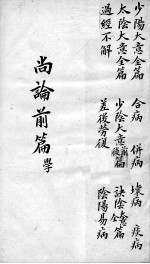 少陽大意全篇 合病 併病 壞病 痰病
太陰大意全篇 少陰大意前篇後篇 厥陰全篇
過經不解 差後勞復 陰陽易病
尚論前篇 學